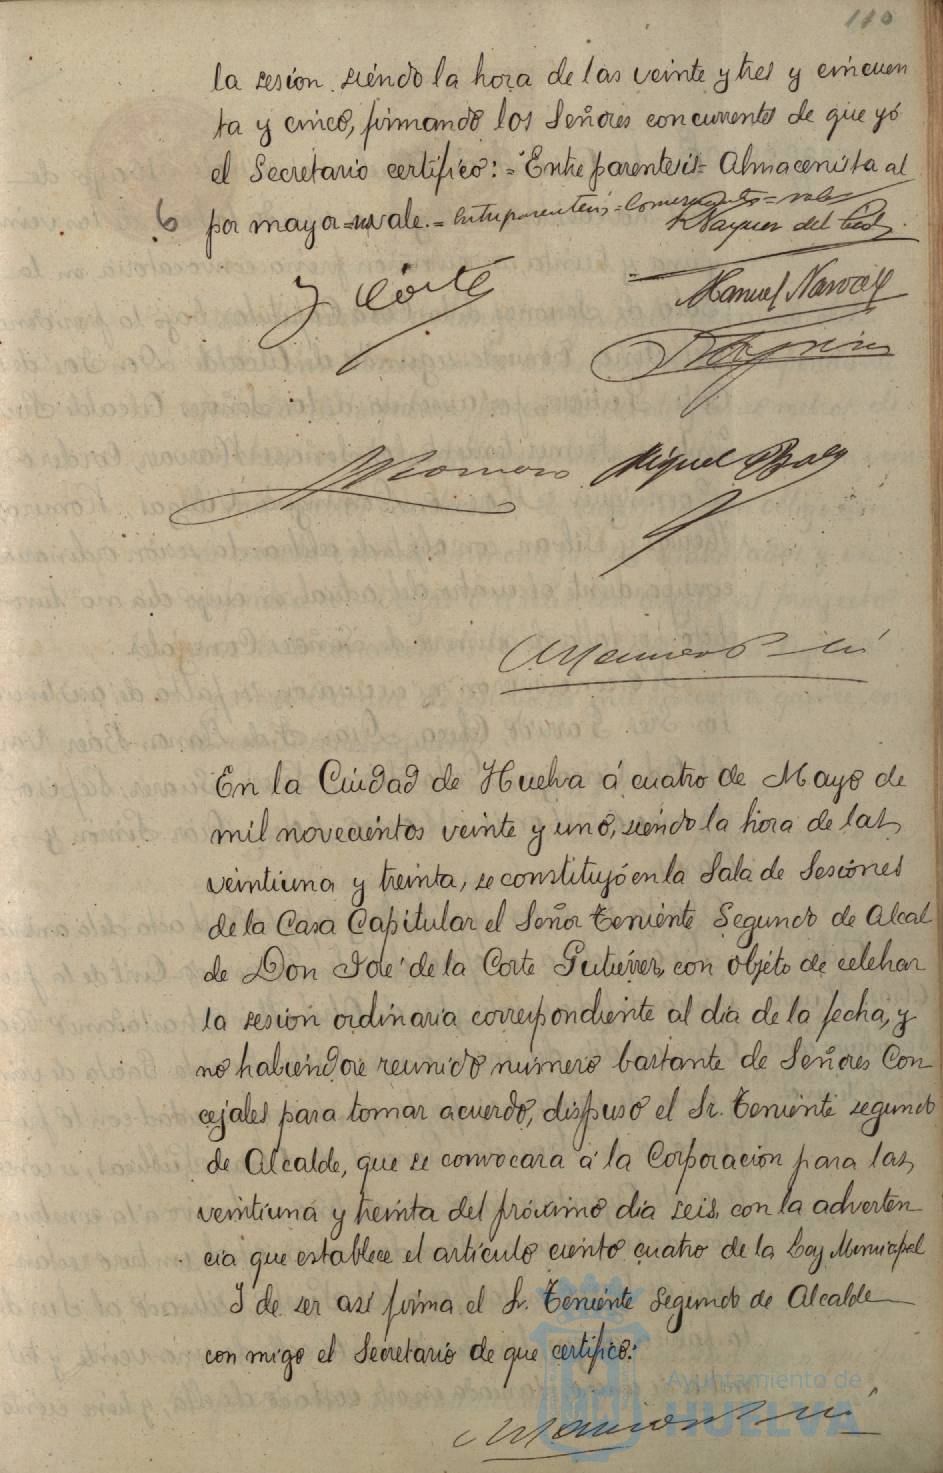 110
la sesión siendo la hora de las veinte y tres y cincuen
ta y cinco, firmando los Señores concurrentes de que yó
el Secretario certifico: = Entre parentesis = Almacenista al
por mayor = no vale. = Entreparentesis = Comerciantes = vale
6
J Corte
Manuel Narvaez
Romero
Miguel Báez
En la Ciudad de Huelva á cuatro de Mayo de
mil novecientos veinte y uno, siendo la hora de las
veintiuna y treinta, se constituyó en la Sala de Sesiones
de la Casa Capitular el Señor Teniente Segundo de Alcal
de Don José de la Corte Gutiérrez, con objeto de celebrar
la sesion ordinaria correspondiente al dia de la fecha, y
no habiendose reunido numero bastante de Señores Con
cejales para tomar acuerdo, dispuso el Sr. Teniente segundo
de Alcalde, que se convocara á la Corporacion para las
veintiuna y treinta del próximo dia seis, con la adverten
cia que establece el articulo ciento cuatro de la Ley Municipal
Y de ser así firma el Sr. Teniente Segundo de Alcalde
con migo el Secretario de que certifico:
Ayuntamiento de
HUELVA